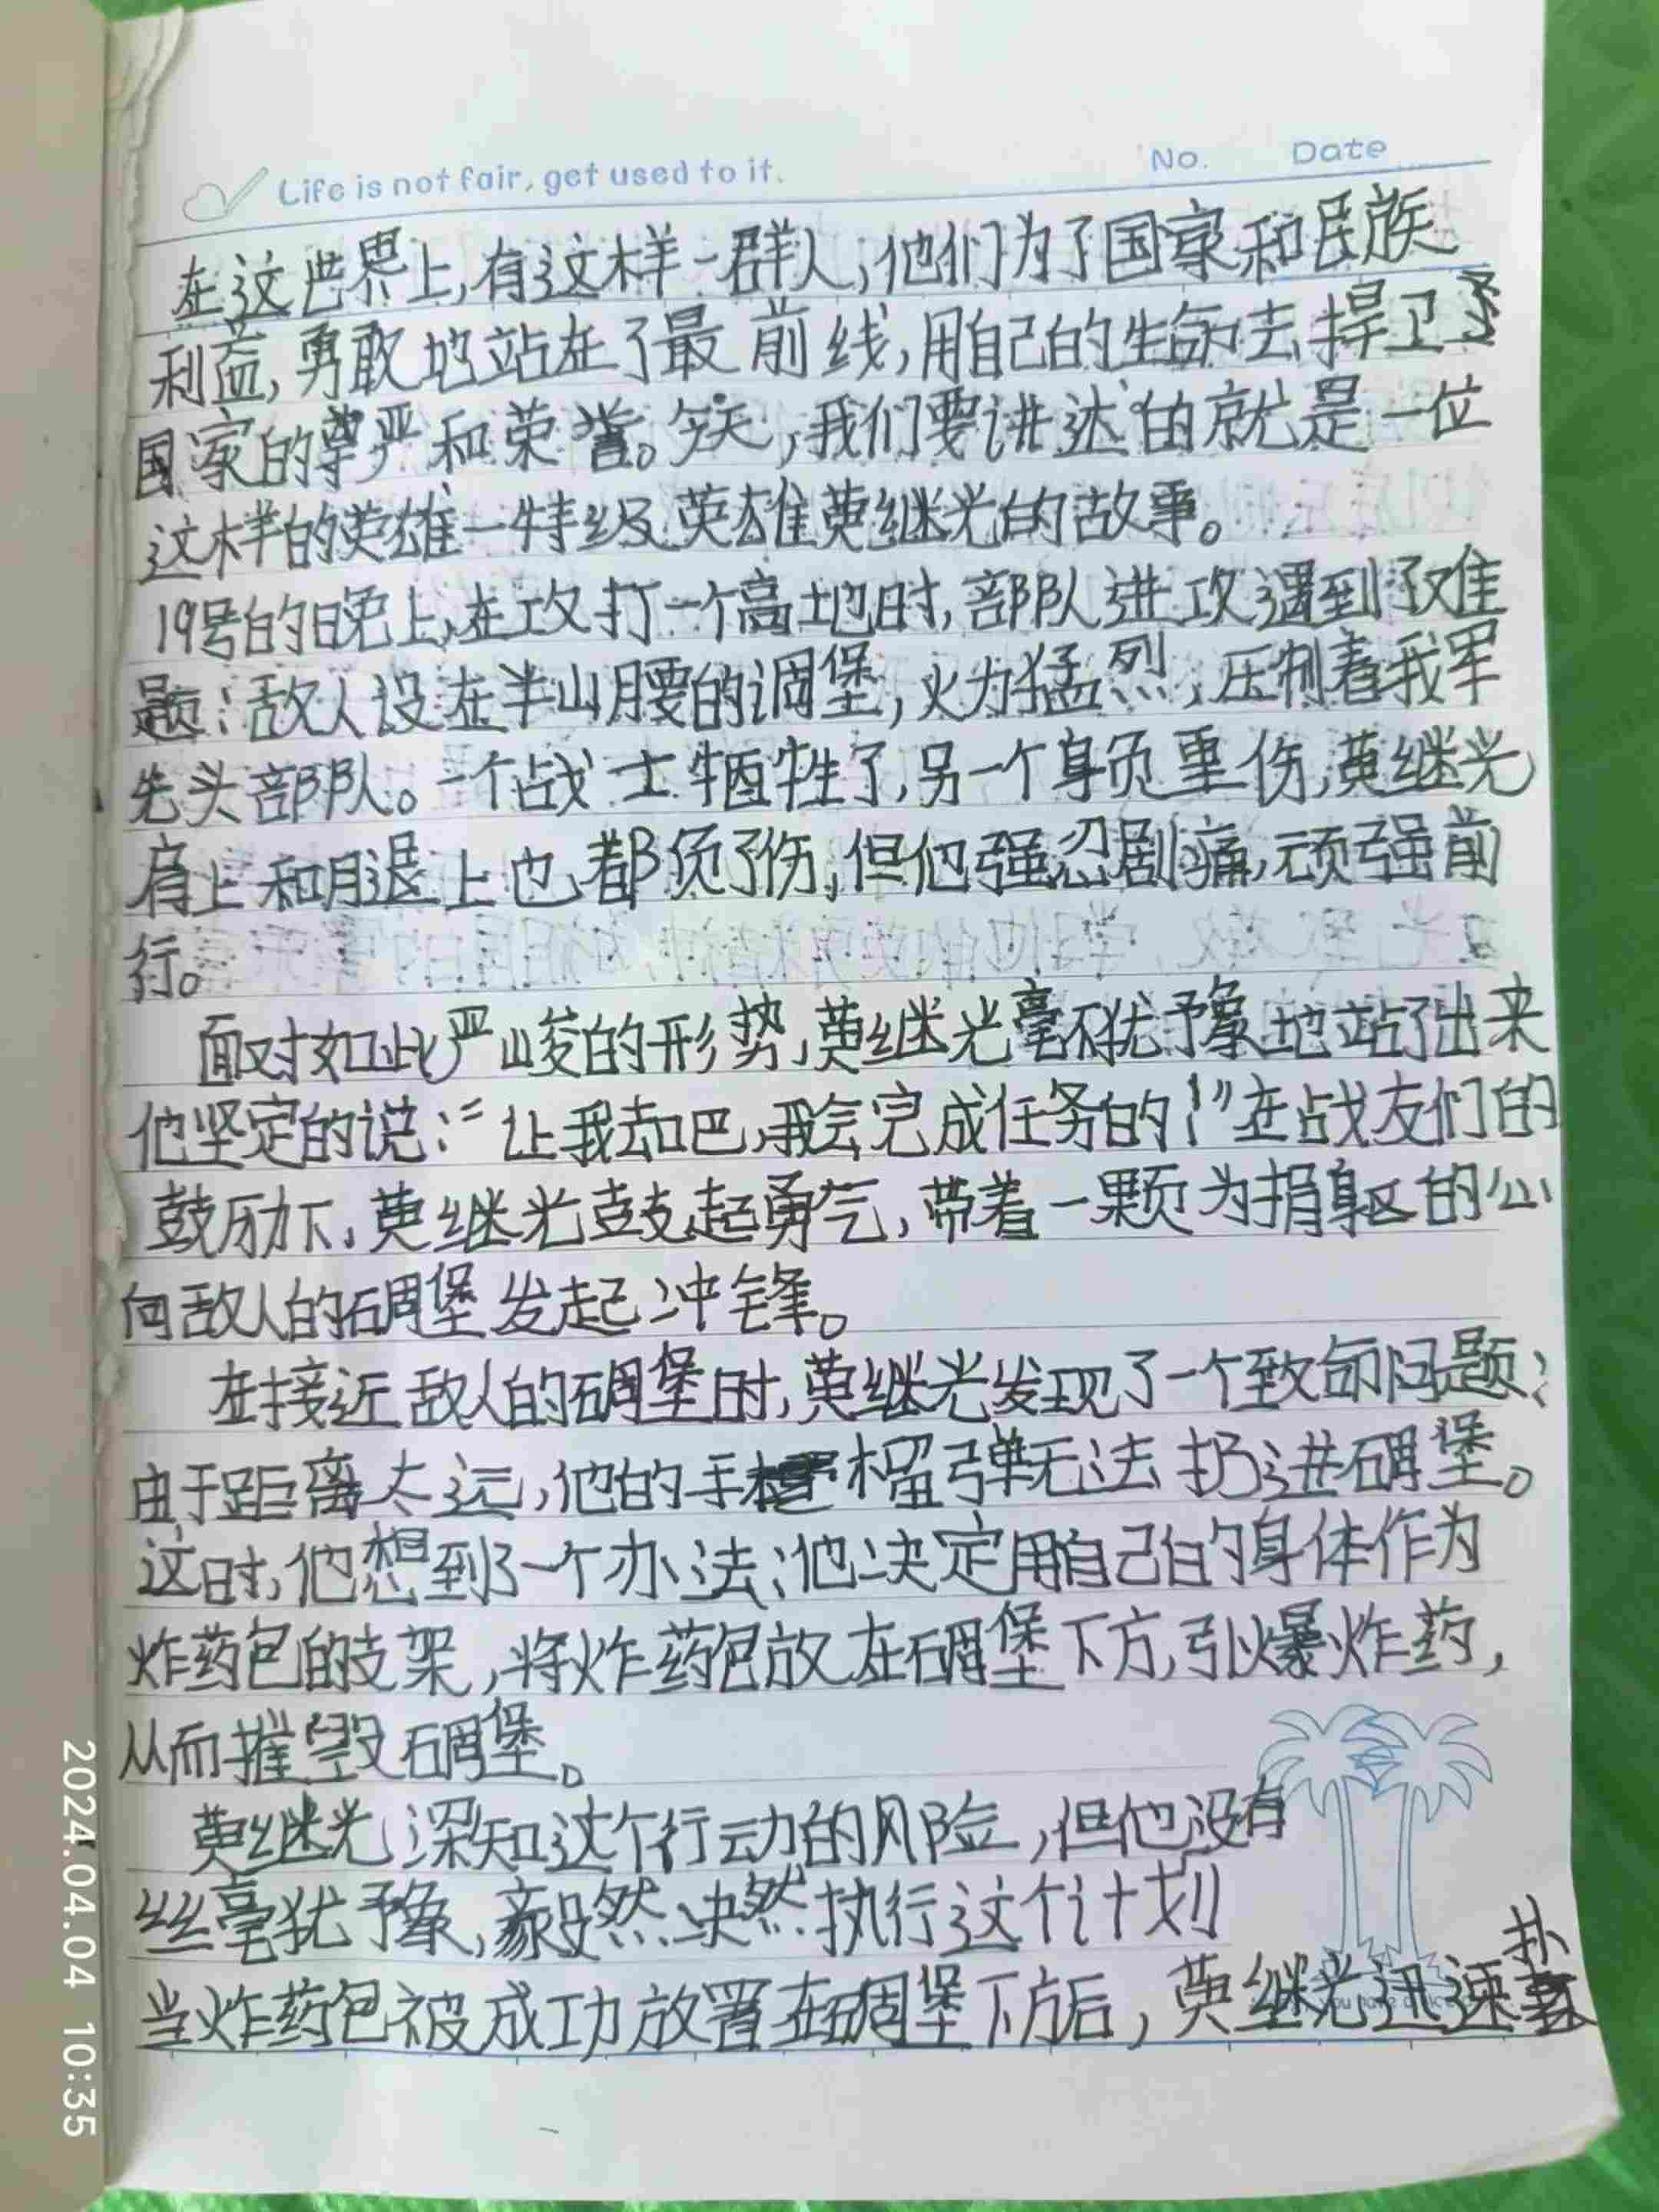 Life is not fair, get used to it.
No. Date
在这世界上,有这样一群人,他们为了国家和民族
利益,勇敢地站在了最前线,用自己的生命去捍卫
国家的尊严和荣誉。今天,我们要讲述的就是一位
这样的英雄一特级英雄黄继光的故事。
19号的晚上,在攻打一个高地时,部队进攻遇到了难
题:敌人设在半山腰的调堡,火力猛烈,压制着我军
先头部队。一个战士牺牲了,另一个身负重伤,黄继光
肩上和腿上也都负了伤,但他强忍剧痛,顽强前
行。
面对如此严峻的形势,黄继光毫不犹予象地站了出来
他坚定的说:“让我去吧,我会完成任务的!”在战友们的
鼓励下,黄继光鼓起勇气,带着一颗为捐躯的心
向敌人的碉堡发起冲锋。
在接近敌人的碉堡时,黄继光发现了一个致命问题:
由于距离太远,他的手榴弹无法扔进碉堡。
这时,他想到了一个办法:他决定用自己的身体作为
炸药包的支架,将炸药包放在碉堡下方,引爆炸药,
从而摧毁碉堡。
黄继光深知这个行动的风险,但他没有
丝毫犹豫,毅然决然执行这个计划
当炸药包被成功放置在碉堡下方后,黄继光迅速扑
2024.04.04 10:35